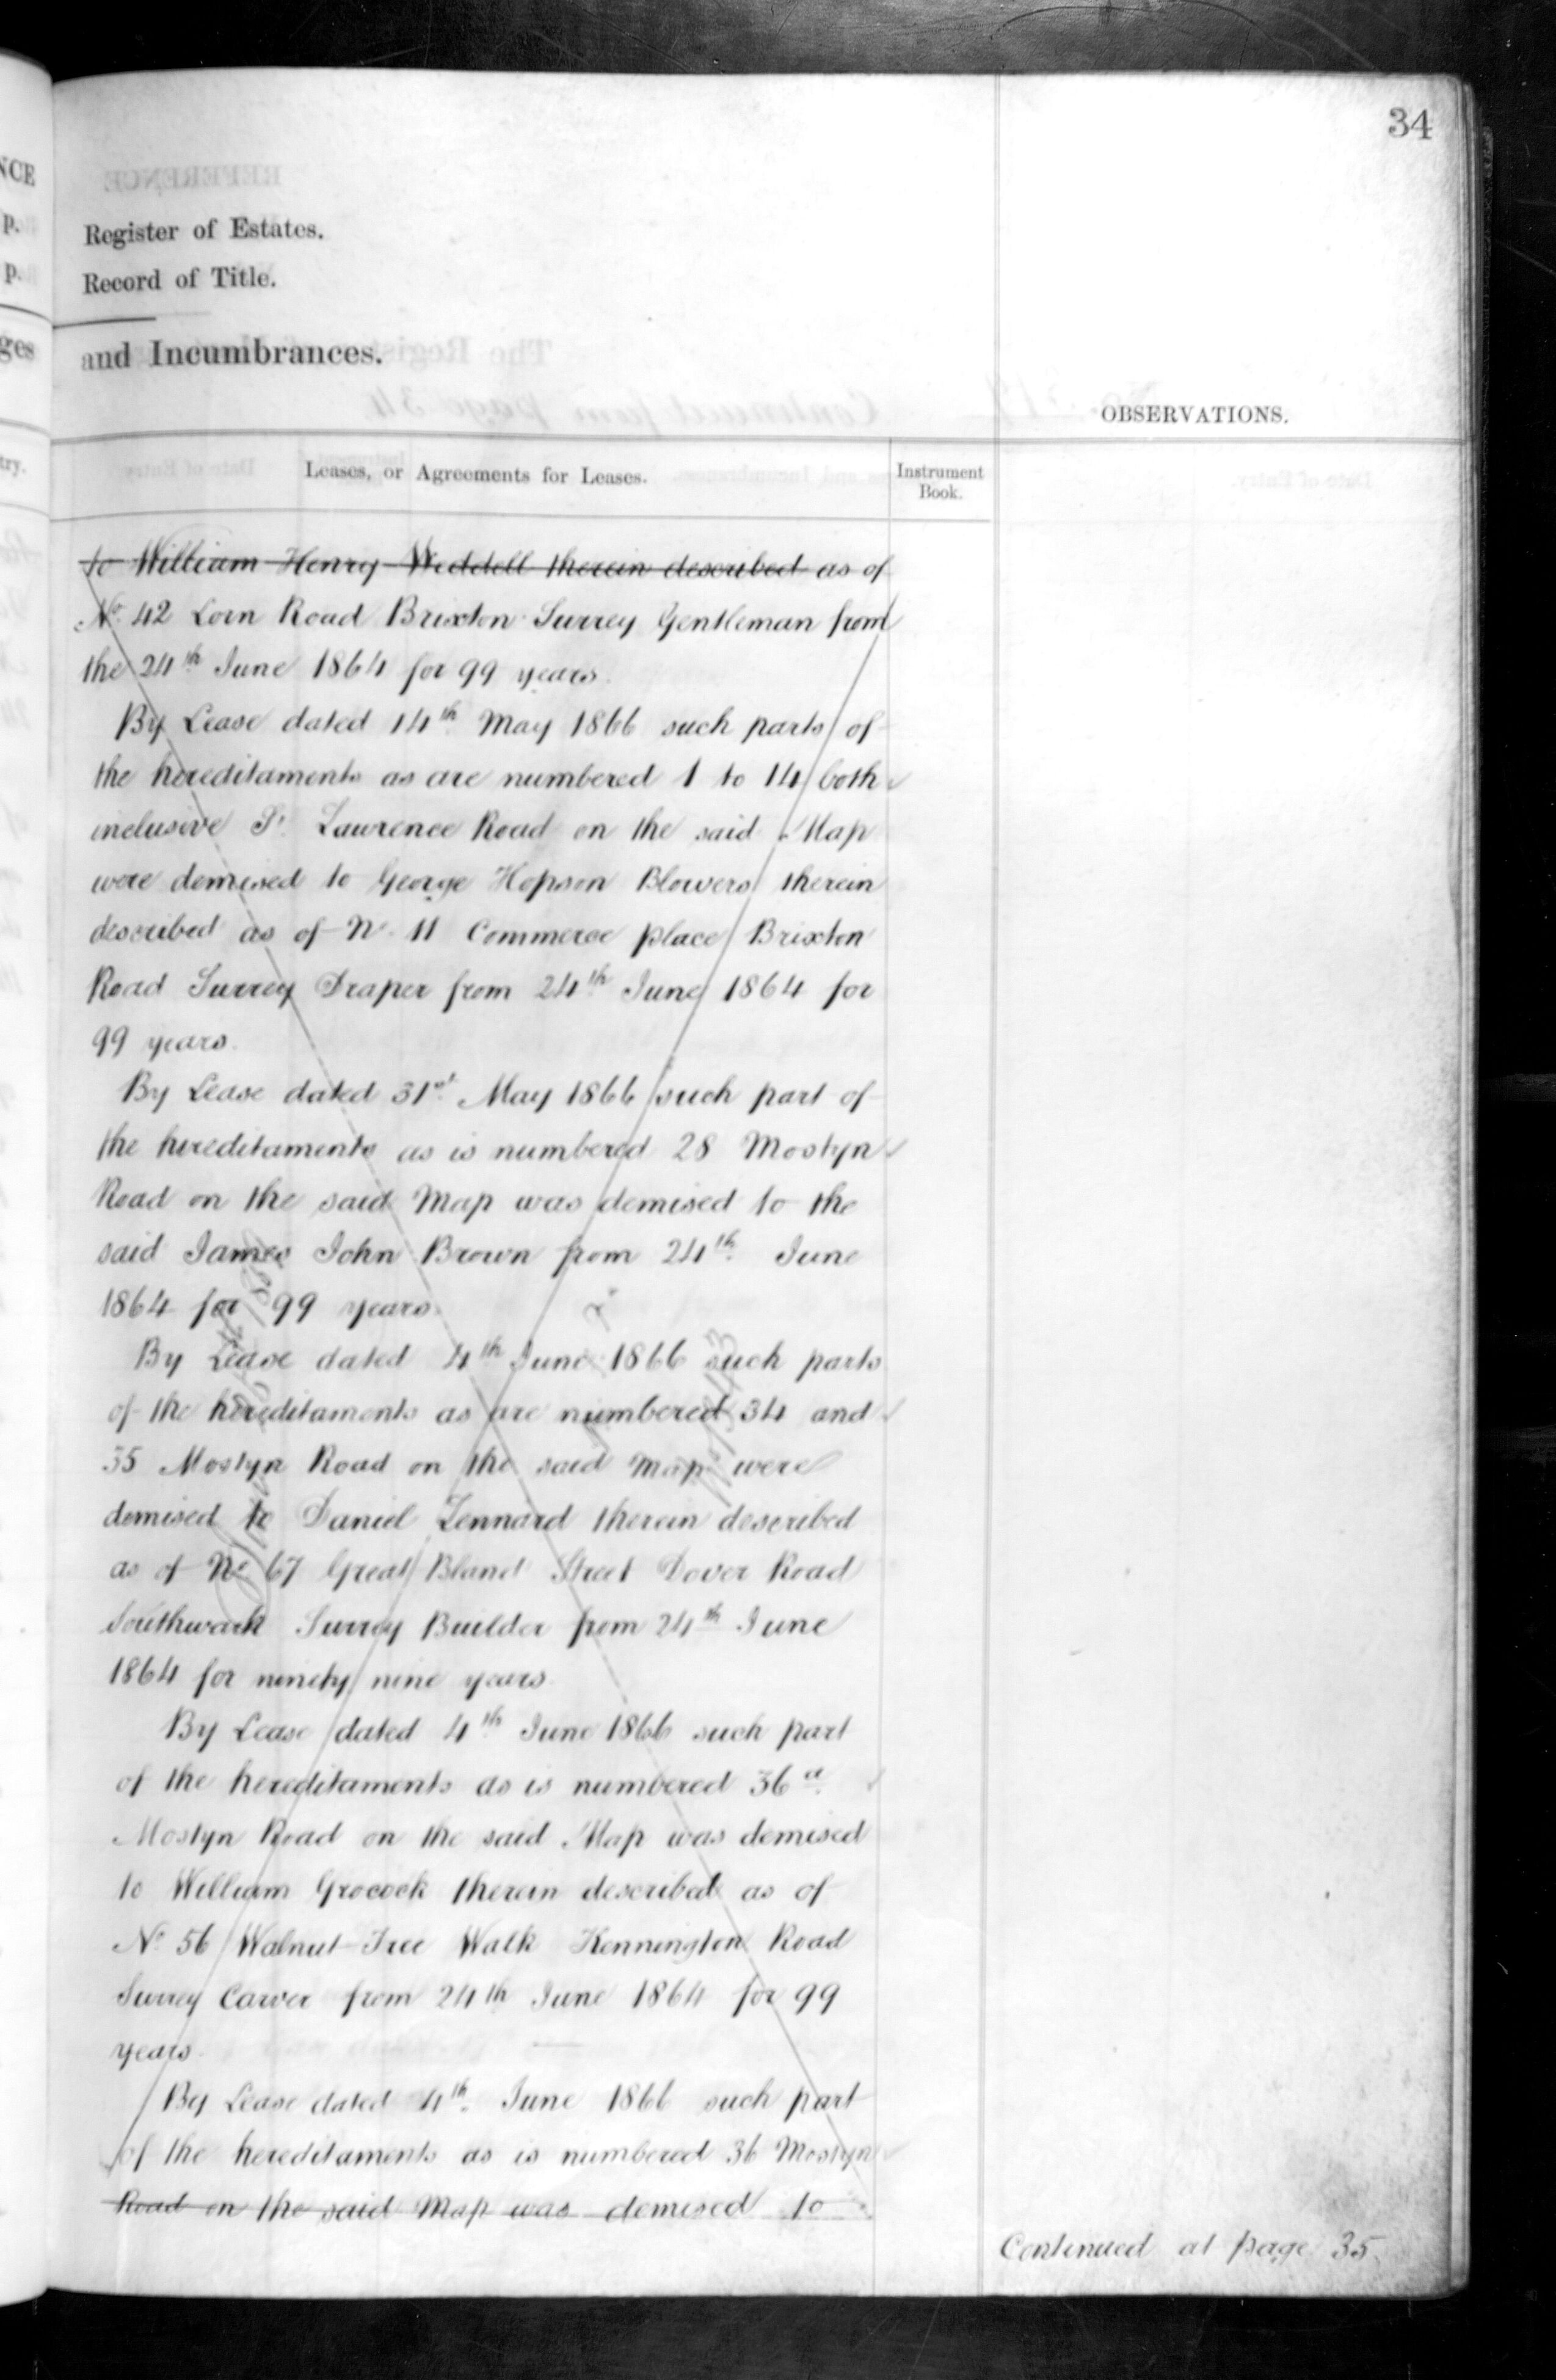 34
Register of Estates.
Record of Title.
and Incumbrances.
OBSERVATIONS.
Leases, or Agreements for Leases.
Instrument
Book.
to William Henry Weddell therein described as of
No. 42 Lorn Road Brixton Surrey Gentleman from
the 24th June 1864 for 99 years.
By Lease dated 14th May 1866 such parts of
the hereditaments as are numbered 1 to 14 both
inclusive St. Lawrence Road on the said Map
were demised to George Hopson Blowers therein
described as of No. 11 Commerce place Brixton
Road Surrey Draper from 24th June 1864 for
99 years.
By Lease dated 31st May 1866 such part of
the hereditaments as is numbered 28 Mostyn
Road on the said Map was demised to the
said James John Brown from 24th June
1864 for 99 years.
By Lease dated 4th June 1866 such parts
of the hereditaments as are numbered 34 and
35 Mostyn Road on the said Map were
demised to Daniel Lennard therein described
as of No 67 Great Bland Street Dover Road
Southwark Surrey Builder from 24th June
1864 for ninety nine years.
By Lease dated 4th June 1866 such part
of the hereditaments as is numbered 36a
Mostyn Road on the said Map was demised
to William Grocock therein described as of
No. 56 Walnut Tree Walk Kennington Road
Surrey Carver from 24th June 1864 for 99
years.
By Lease dated 4th June 1866 such part
of the hereditaments as is numbered 36 Mostyn
Road on the said Map was demised to
Continued at page 35.